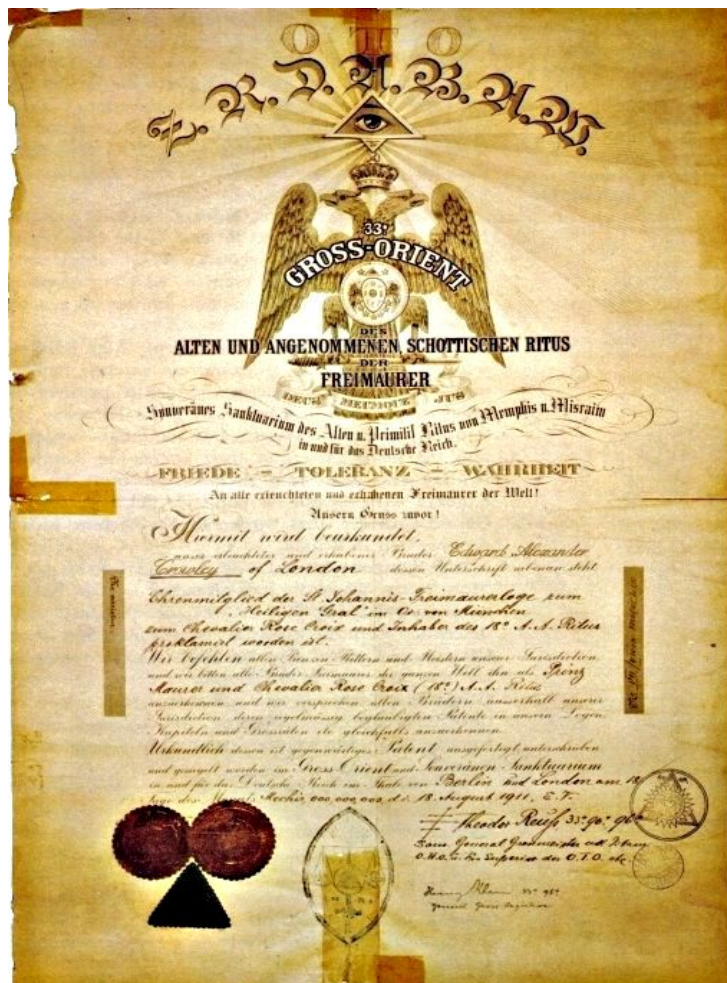 O T O
Z. R. D. A. B. A. W.
33°
GROSS-ORIENT
DES
ALTEN UND ANGENOMMENEN, SCHOTTISCHEN RITUS
DER
FREIMAURER
DEUS MEUMQUE JUS
Souveränes Sanktuarium des Alten u. Primitif Ritus von Memphis u. Misraim
in und für das Deutsche Reich.
FRIEDE – TOLERANZ – WAHRHEIT
An alle erleuchteten und erhabenen Freimaurer der Welt!
Unsern Gruss zuvor!
Hiermit wird beurkundet,
unser erleuchteter und erhabener Bruder Edward Alexander
Crowley of London dessen Unterschrift nebenan steht
Ehrenmitglied der St Johannis-Freimaurerloge zum
"Heiligen Gral" im Or. von München
zum Chevalier Rose Croix und Inhaber des 18° A. A. Ritus
proklamiert worden ist.
Wir befehlen allen Rittern und Meistern unserer Jurisdiction
und wir bitten alle Freimaurer der ganzen Welt ihn als Prinz
Maurer und Chevalier Rose Croix (18°) A. A. Ritus
anzuerkennen und wir versprechen allen Brüdern ausserhalb unserer
Jurisdiction deren regelmässig beglaubigten Patente in unsern Logen
Kapiteln und etc gleichfalls anzuerkennen.
Urkundlich dessen ist gegenwärtiges Patent ausgefertigt, unterschrieben
und gesiegelt worden im Gross Orient und Souveränen Sanktuarium
in und für das Deutsche Reich im Thale von Berlin und London am 18
Tage des Mechir 000,000,000, d. i. 18. August 1911, E. V.
Theodor Reuß 33° 90° 96°
Souv. General Grossmeister
O.H.O. Superior des O. T. O. etc
Henry Klein 33° 95°
General Gross